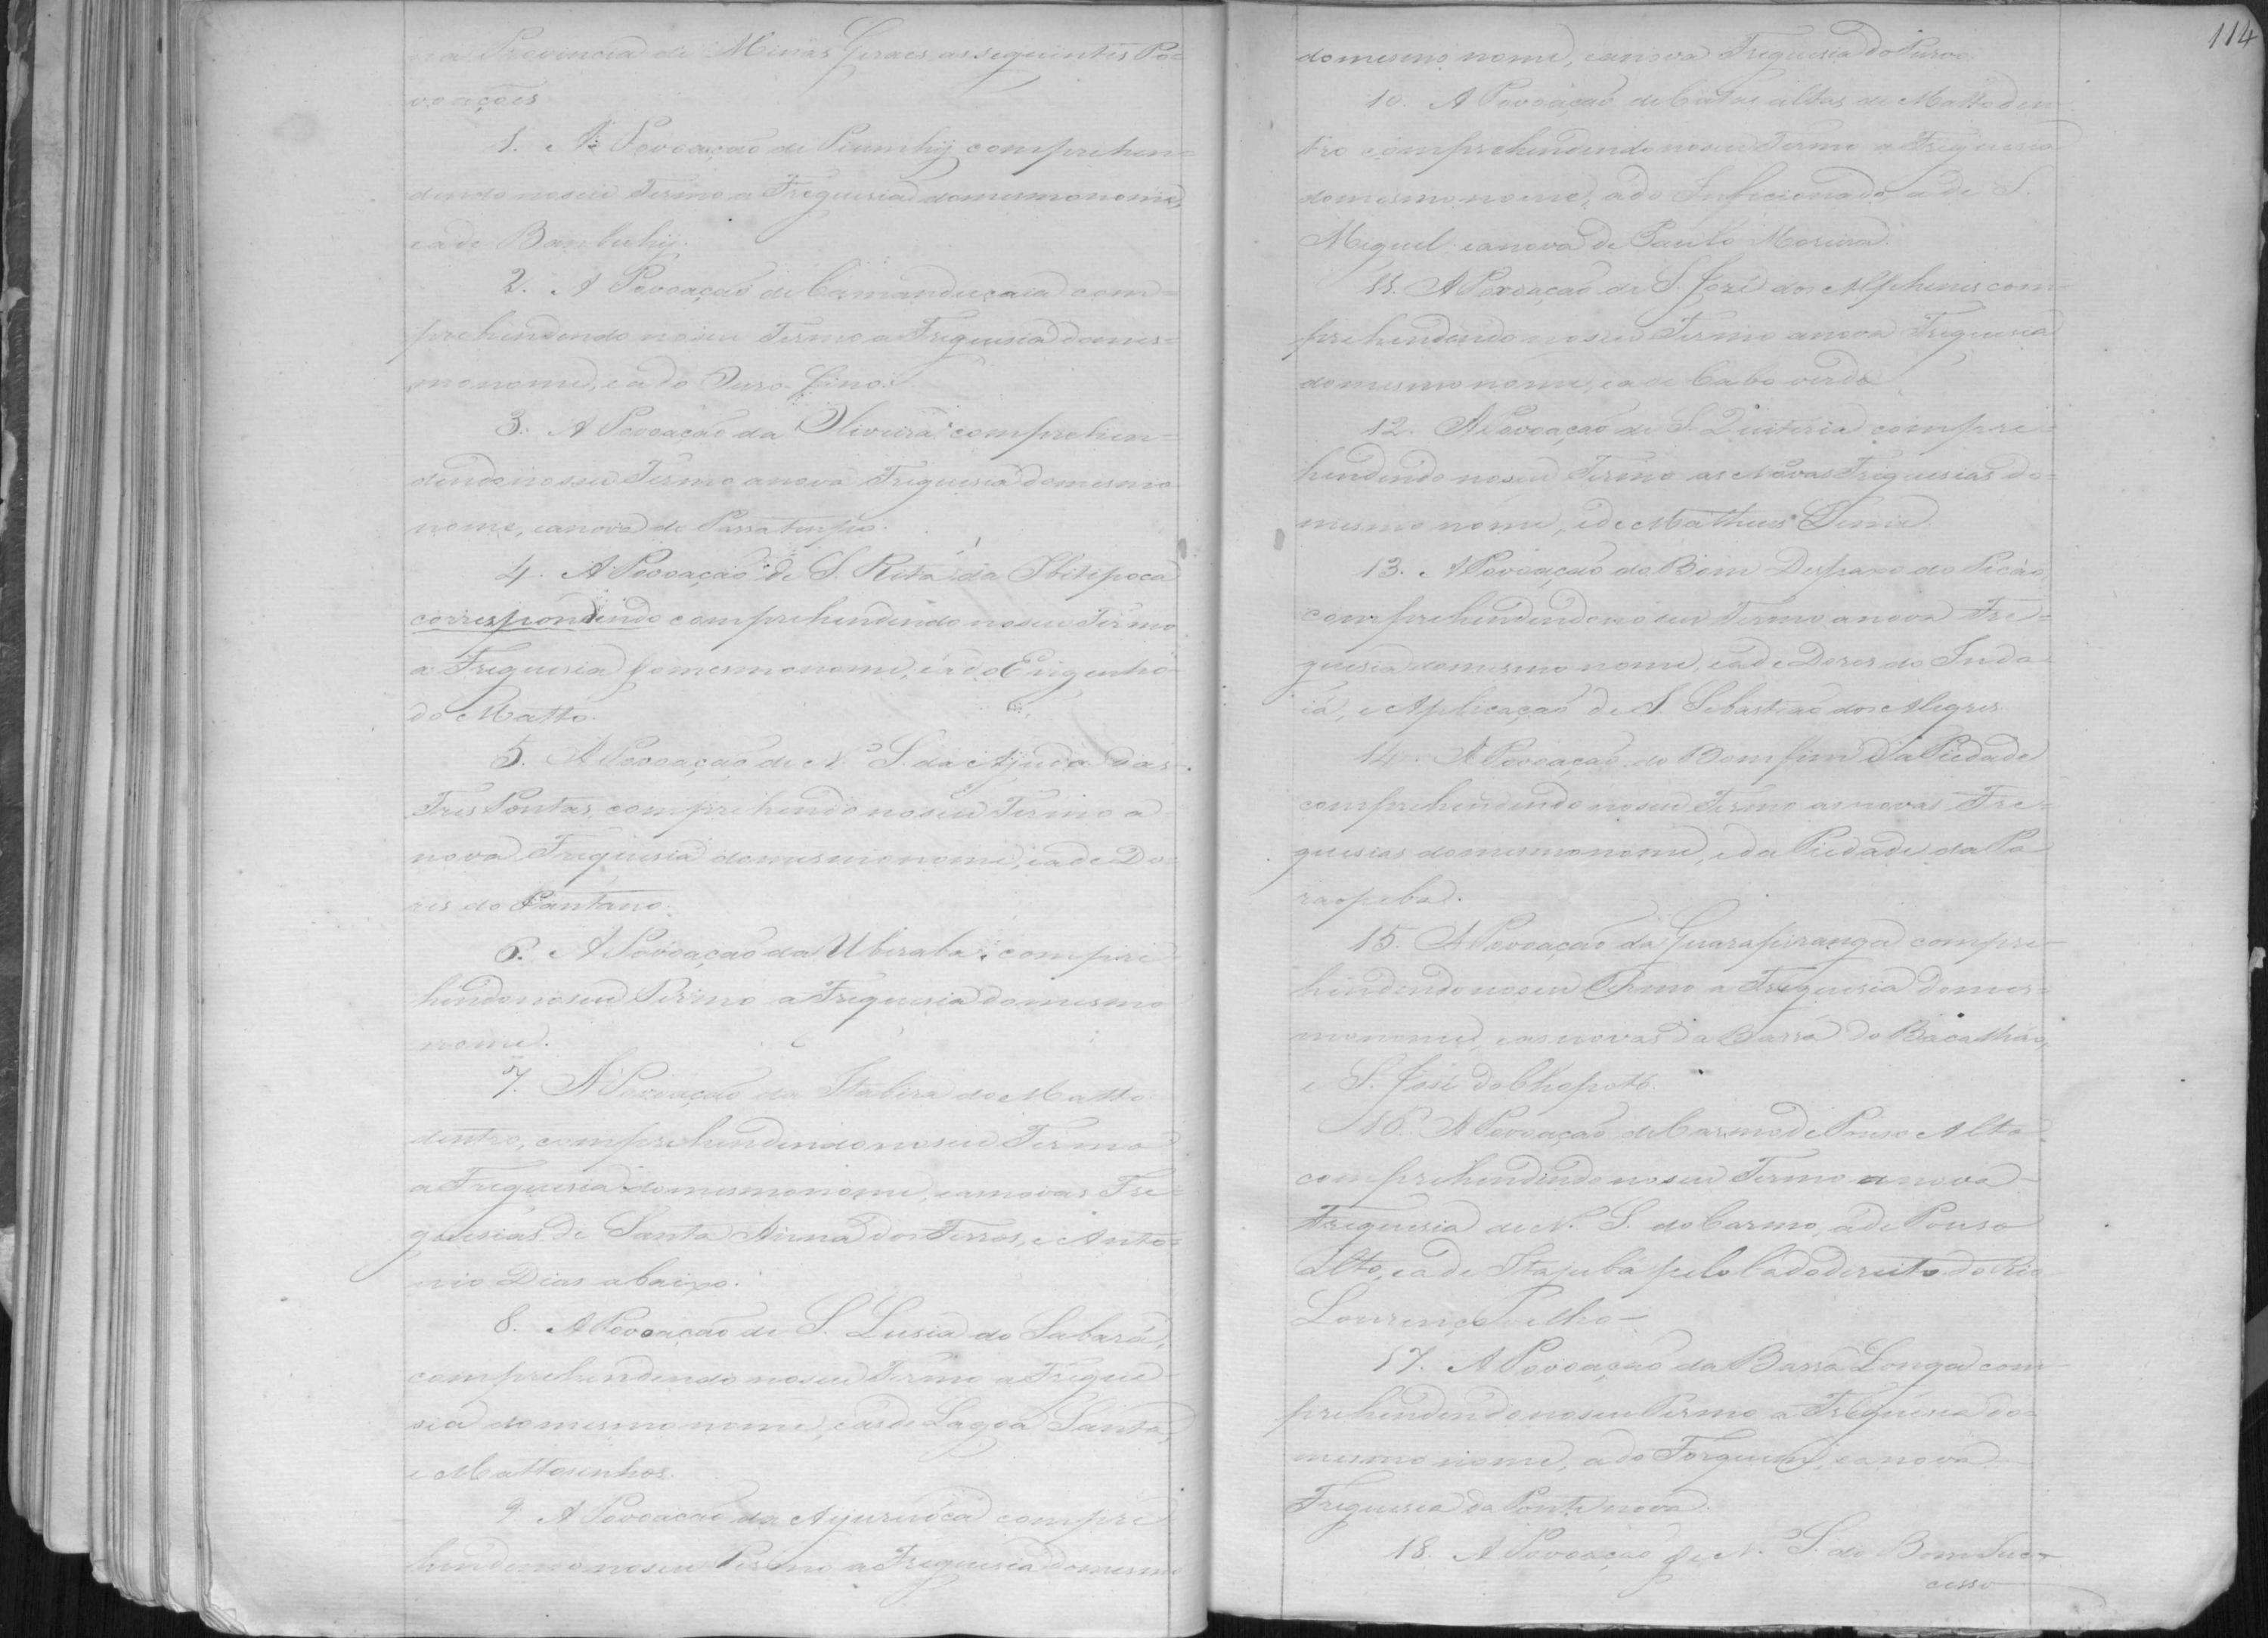 na Provincia de Minas Geraes as seguintes Po=
voações
1. A Povoação de Piumhy comprehen=
dendo no seu Termo a Freguesia do mesmo nome,
e a de Bambuhy.
2. A Povoação de Camanducaia com=
prehendendo no seu Termo a Freguesia do mes=
mo nome, e a do Ouro-fino.
3. A Povoação da Oliveira comprehen=
dendo no seu Termo a nova Freguesia do mesmo
nome, e a nova de Passatempo.
4. A Povoação de S. Rita da Ibitipoca
correspondendo comprehendendo no seu Termo
a Freguesia do mesmo nome, e a do Engenho
do Matto.
5. A Povoação de N. S. da Ajuda das
Tres Pontas, comprehendo no seu Termo a
nova Freguesia do mesmo nome, e a de Do-
res do Pantano.
6. A Povoação da Uberaba, compre
hendo no seu Termo a Freguesia do mesmo
nome.
7. A Povoação da Itabira do Matto
dentro, comprehendendo no seu Termo
a Freguesia do mesmo nome, e as novas Fre=
guesias de Santa Anna dos Ferros, e Anto=
nio Dias abaixo.
8. A Povoação de S. Lusia do Sabará,
comprehendendo no seu Termo a Fregue-
sia do mesmo nome, e as de Lagoa Santa,
e Mattosinhos.
9. A Povoação da Ayuruoca compre
hendendo no seu Termo a Freguesia do mesmo
114
do mesmo nome, e a nova Freguesia do Turvo.
10. A Povoação de Catas altas de Matto den
tro comprehendendo no seu Termo a Freguesia
do mesmo nome, a do Inficionado, a de S.
Miguel e a nova de Paulo Moreira.
11. A Povoação de S. José dos Alphenes com-
prehendendo no seu Termo a nova Freguesia
do mesmo nome, e a de Cabo verde
12. A Povoação de S. Quiteria compre=
hendendo no seu Termo as Novas Freguesias do=
mesmo nome, e de Matheus Leme
13. A Povoação do Bom Despaxo do Picão,
comprehendendo no seu Termo a nova Fre=
guesia do mesmo nome, e a de Dores do Inda
iá, e Aplicação de S. Sebastião dos Alegres.
14. A Povoação do Bomfim da Piedade
comprehendendo no seu Termo as novas Fre=
guesias do mesmo nome, e da Piedade da Pa
raopeba.
15. A Povoação da Guarapiranga compre-
hendendo no seu Termo a Freguesia do mes=
mo nome, e as novas da Barra do Bacalháo,
e S. José do Chopotó.
16. A Povoação de Carmo de Pouso Alto
comprehendendo no seu Termo a nova-
Freguesia de N. S. do Carmo, a de Pouso
Alto, e a de Itajubá pelo lado direito do Rio
Lourenço Velho-
17. A Povoação da Barra Longa com-
prehendendo no seu Termo a Freguesia do=
mesmo nome, a do Forquim, e a nova
Freguesia da Ponte nova.
18. A Povoação de N. S. do Bom Suc=
cesso